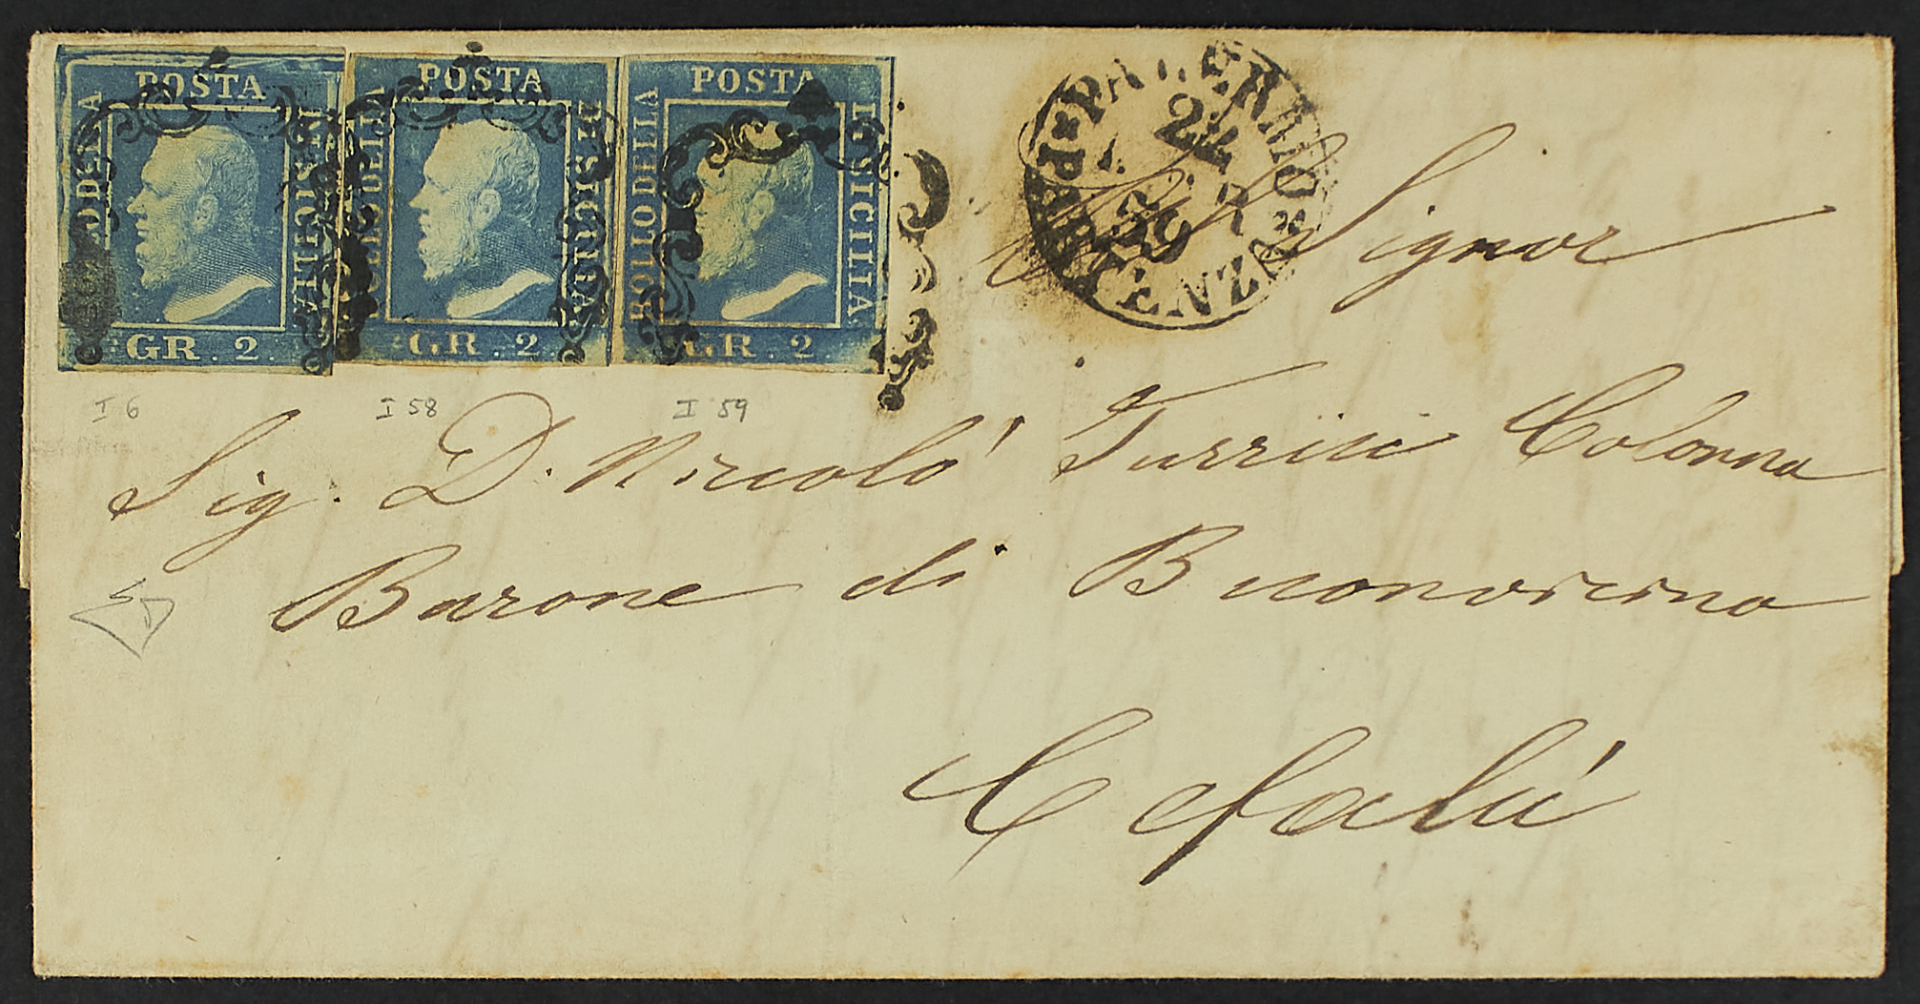 POSTA
BOLLO DELLA
DI SICILIA
GR. 2.
POSTA
BOLLO DELLA
DI SICILIA
GR. 2
POSTA
BOLLO DELLA
DI SICILIA
GR. 2.
PALERMO
24
59
PARTENZA
Al Signor
I 6
I 58
I 59
Sig. D. Niccoló Turrisi Colonna
Barone di Buonvicino
Cefalú